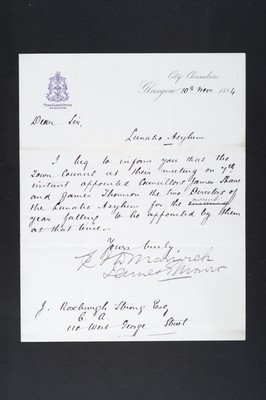 City Chambers
Glasgow 10th Nov. 1884
Dear Sir,
Lunatic Asylum
I beg to inform you that the
Town Council at their meeting on 7th
instant appointed Councillors James Shaw
and James Thomson the two Directors of
the Lunatic Asylum for the
year falling to be appointed by them
at that time.
Yours truly
J. Roxburgh Strang Esq
C. A.
110 West George Street